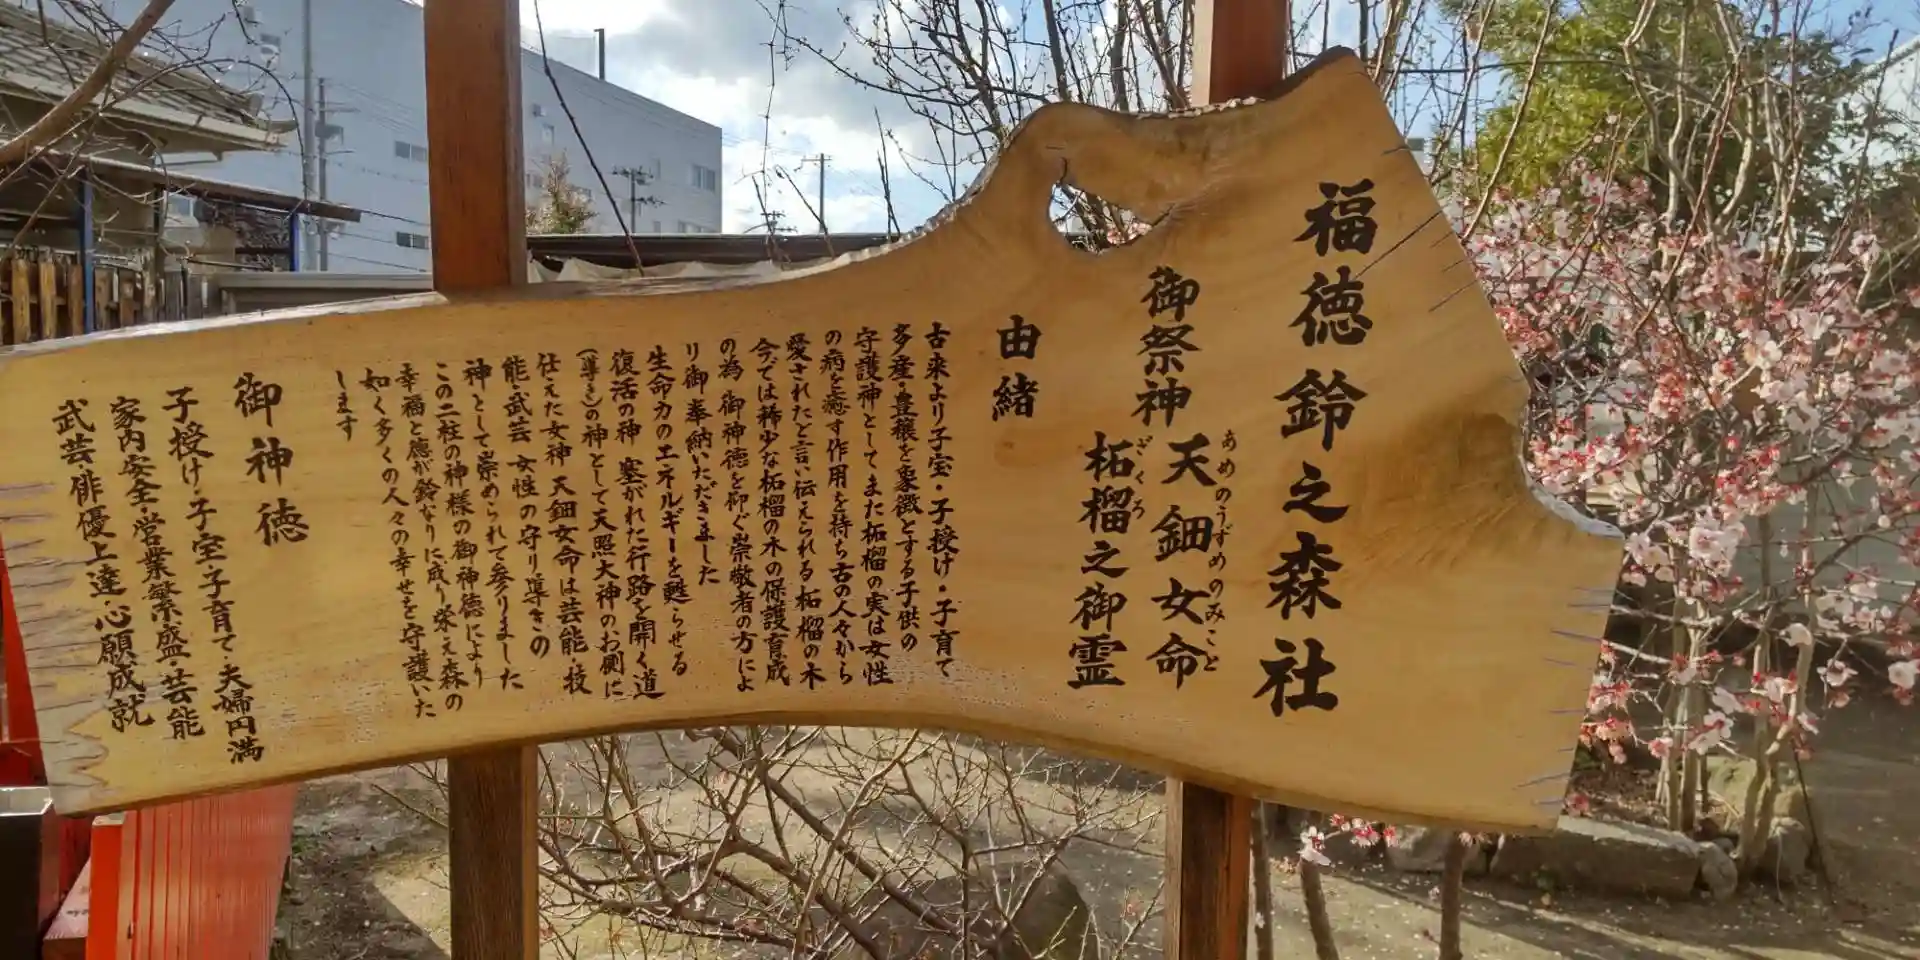 福徳鈴之森社
御祭神
天鈿女命
あめのうずめのみこと
柘榴之御霊
ざくろ
由緒
古来より子宝・子授け・子育て
多産・豊穣を象徴とする子供の
守護神としてまた柘榴の実は女性
の病を癒す作用を持ち古の人々から
愛されたと言い伝えられる柘榴の木
今では稀少な柘榴の木の保護育成
の為 御神徳を仰ぐ崇敬者の方によ
り御奉納いただきました
生命力のエネルギーを甦らせる
復活の神 塞がれた行路を開く道
(導き)の神として天照大神のお側に
仕えた女神 天鈿女命は芸能・技
能・武芸 女性の守り導きの
神として崇められて参りました
この二柱の神様の御神徳により
幸福と徳が鈴なりに成り栄え森の
如く多くの人々の幸せを守護いた
します
御神徳
子授け・子宝・子育て・夫婦円満
家内安全・営業繁盛・芸能
武芸・俳優上達・心願成就